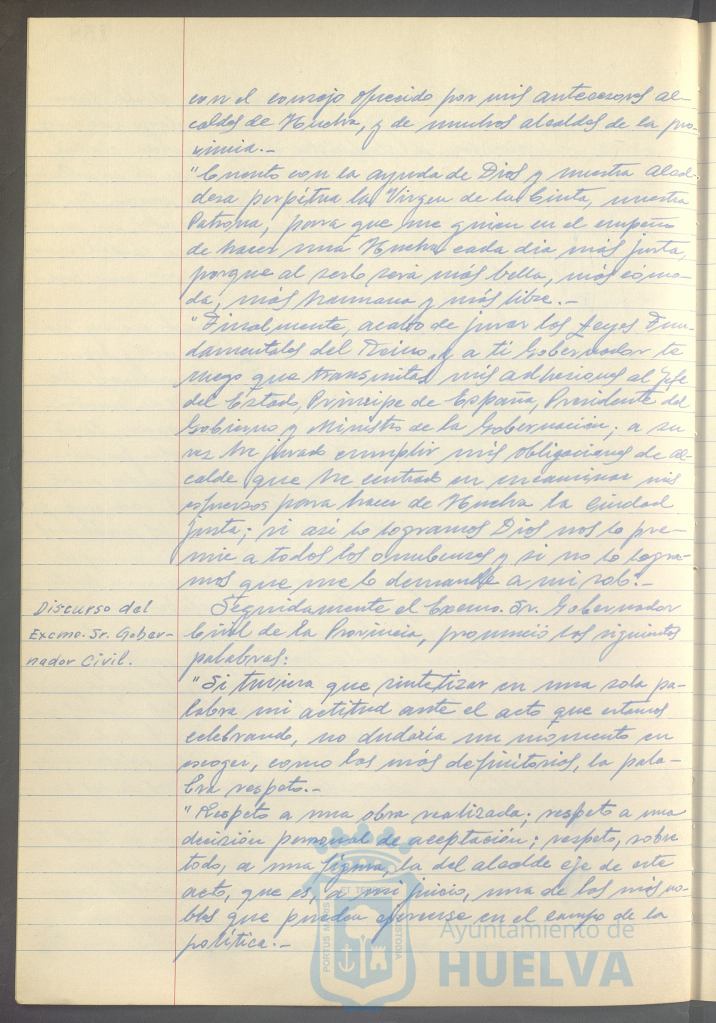 con el consejo ofrecido por mis antecesores al-
caldes de Huelva, y de muchos alcaldes de la pro-
vincia.-
"Cuento con la ayuda de Dios y nuestra Alcal-
desa perpétua la Virgen de la Cinta, nuestra
Patrona, para que me guien en el empeño
de hacer una Huelva cada dia más justa,
porque al serlo será más bella, más cómo-
da, más humana y más libre.-
"Finalmente, acabo de jurar las Leyes Fun-
damentales del Reino, y a ti Gobernador te
ruego que transmitas mis adhesiones al Jefe
del Estado, Principe de España, Presidente del
Gobierno y Ministro de la Gobernación; a su
vez he jurado cumplir mis obligaciones de al-
calde que he centrado en encaminar mis
esfuerzos para hacer de Huelva la Ciudad
justa; si asi lo logramos Dios nos lo pre-
mie a todos los onubenses y si no lo logra-
mos que me lo demande a mi solo".-
Discurso del
Excmo. Sr. Gober-
nador Civil.
Seguidamente el Excmo. Sr. Gobernador
Civil de la Provincia, pronunció las siguientes
palabras:
"Si tuviera que sintetizar en una sola pa-
labra mi actitud ante el acto que estamos
celebrando, no dudaría un momento en
escoger, como las más definitorias, la pala-
bra respeto.-
"Respeto a una obra realizada; respeto a una
decisión personal de aceptación; respeto, sobre
todo, a una figura, la del alcalde eje de este
acto, que es, a mi juicio, una de las más no-
bles que pueden ejercerse en el campo de la
política.-
PORTUS MARIS ET TERRAE CUSTODIA
Ayuntamiento de
HUELVA